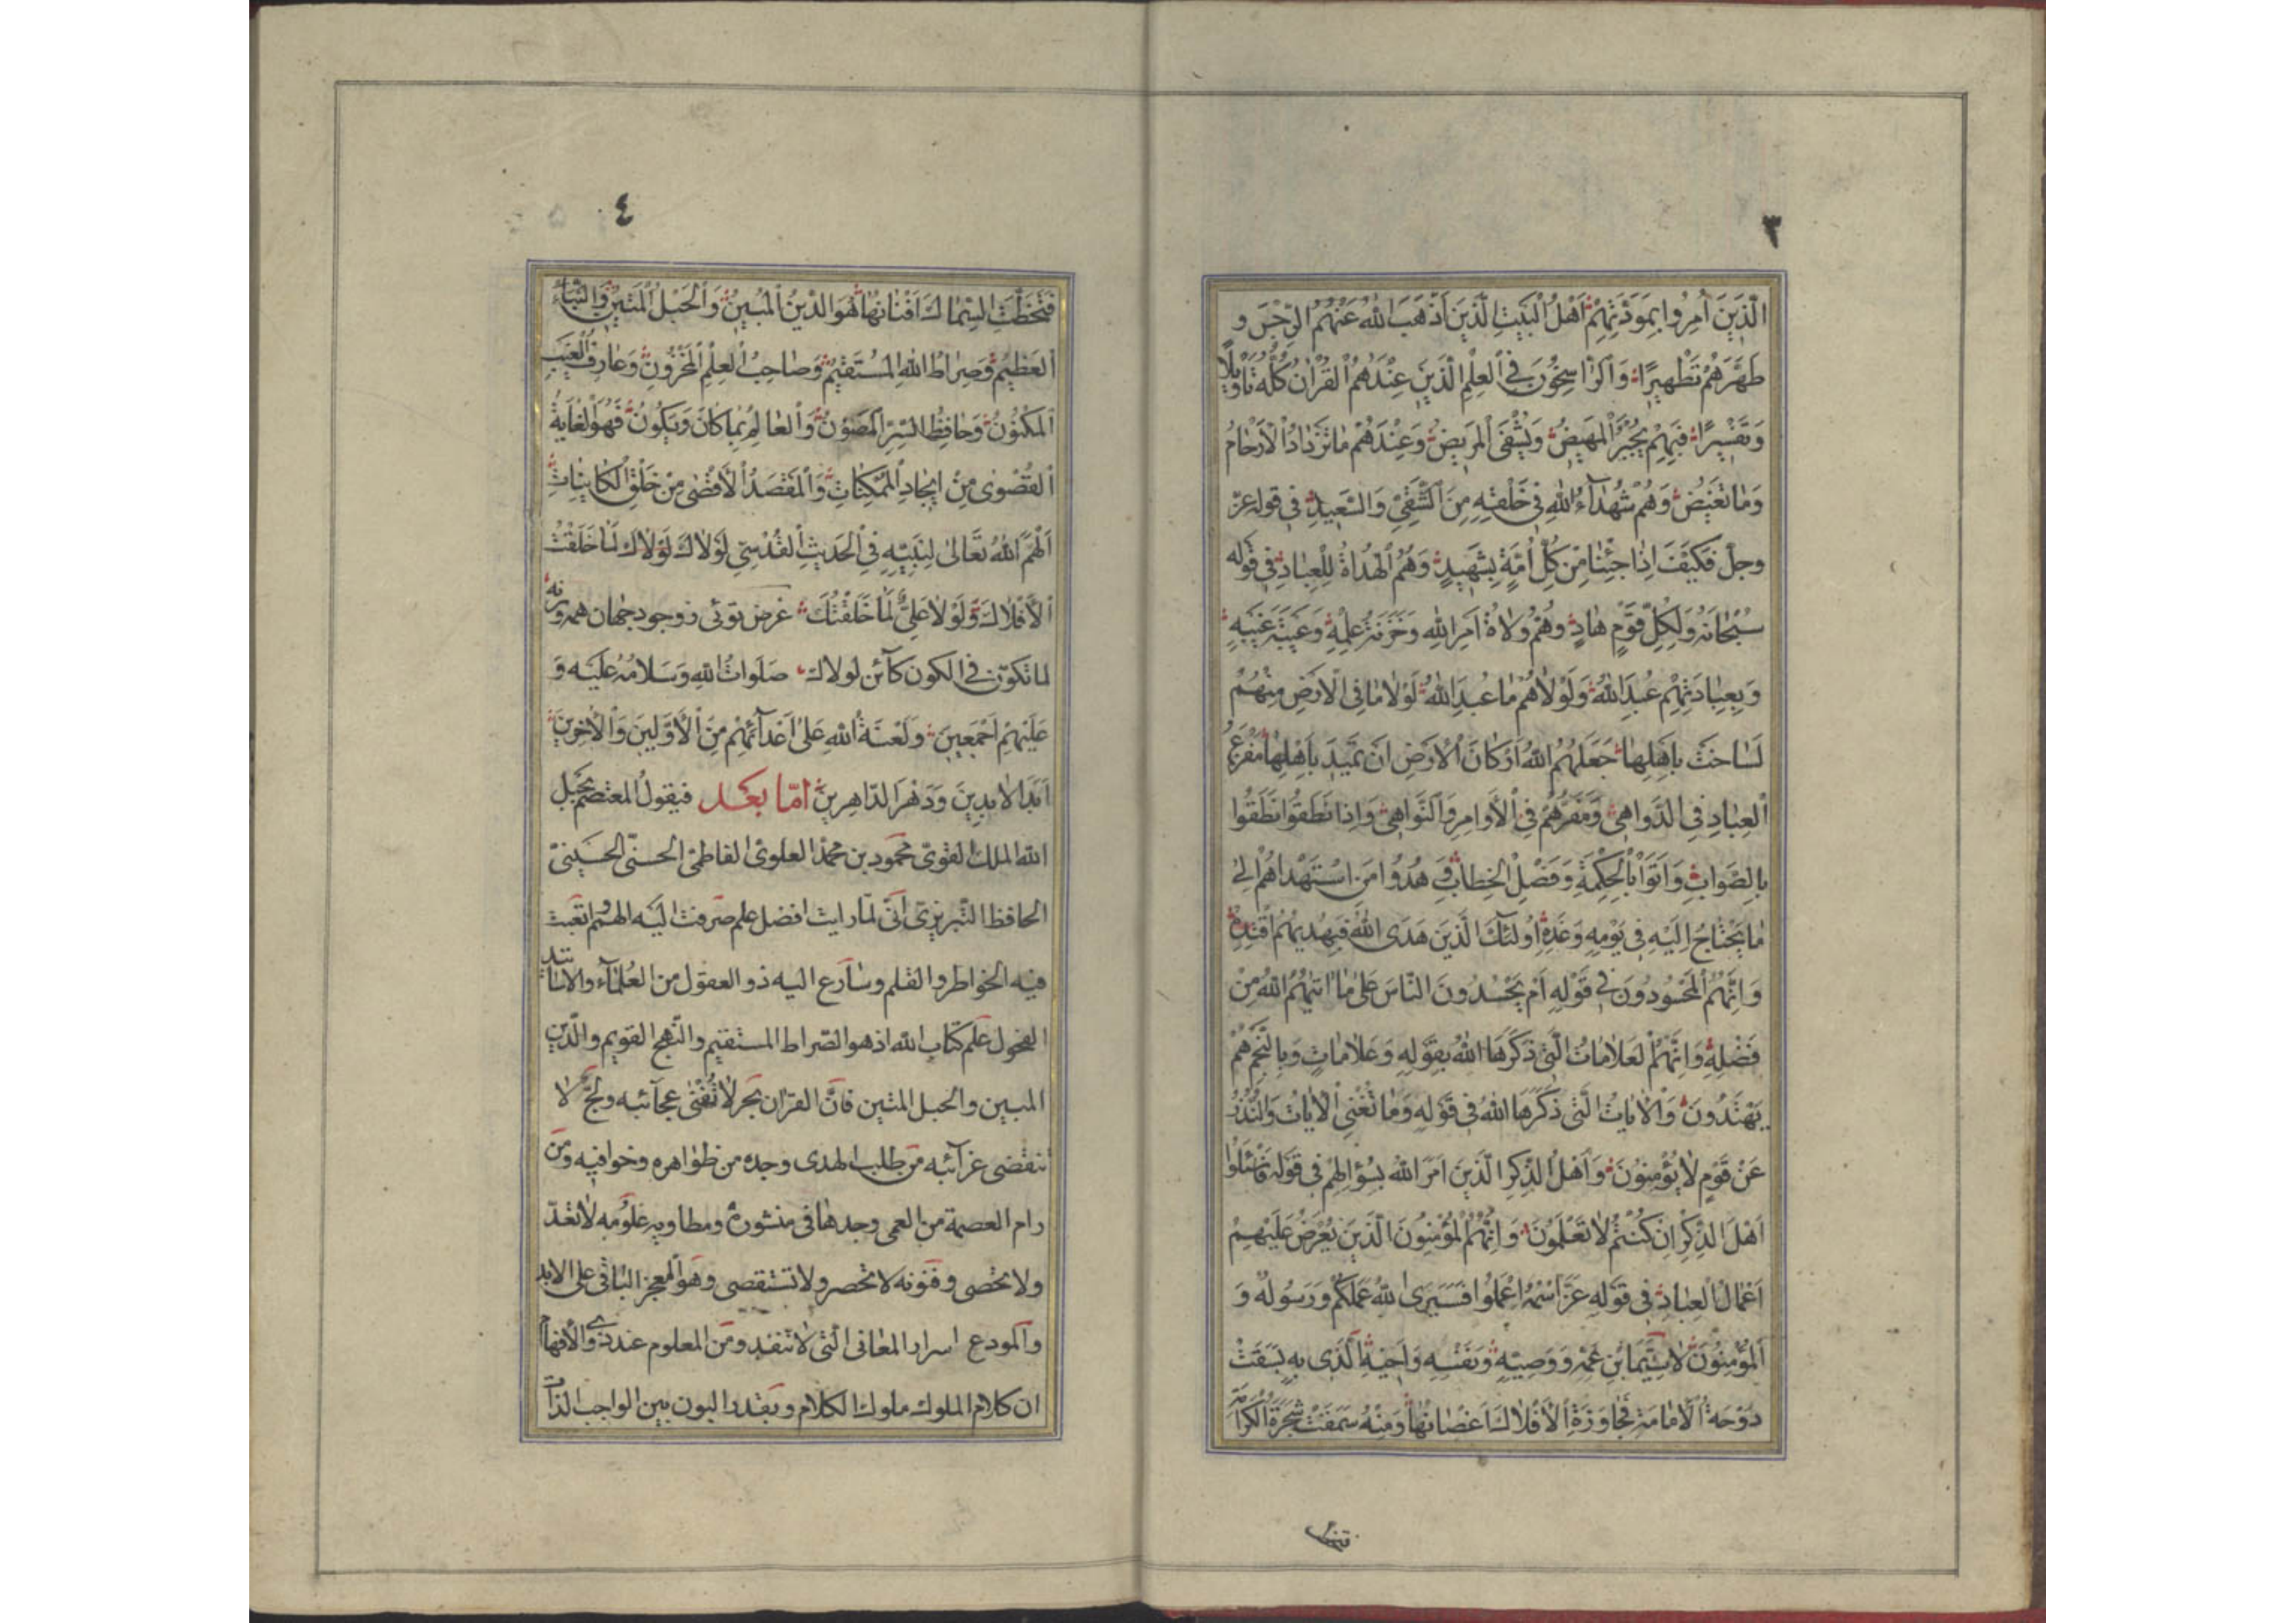 ٣
الَّذِينَ أُمِرُوا بِمَوَدَّتِهِمْ أَهْلُ الْبَيْتِ الَّذِينَ أَذْهَبَ اللهُ عَنْهُمُ الرِّجْسَ وَ
طَهَّرَهُمْ تَطْهِيرًا وَالرَّاسِخُونَ فِي الْعِلْمِ الَّذِينَ عِنْدَهُمُ الْقُرْانُ كُلُّهُ تَأْوِيلًا
وَتَفْسِيرًا فَبِهِمْ يُجْبَرُ الْمَهِيضُ وَيُشْفَى الْمَرِيضُ وَعِنْدَهُمْ مَا تَزْدَادُ الْأَرْحَامُ
وَمَا تَغِيضُ وَهُمْ شُهَدَآءُ اللهِ فِي خَلْقِهِ مِنَ الشَّقِيِّ وَالسَّعِيدِ فِي قوله عزّ
وجلّ فَكَيْفَ اِذَا جِئْنَا مِنْ كُلِّ اُمَّةٍ بِشَهِيدٍ وَهُمُ الْهُدَاةُ لِلْعِبَادِ فِي قَوله
سُبْحَانَهُ وَلِكُلِّ قَوْمٍ هَادٍ وَهُمْ وُلَاةُ اَمْرِ اللهِ وَخَزَنَةُ عِلْمِهِ وَعَيْبَةُ غَيْبِهِ
وَبِعِبَادَتِهِمْ عُبِدَ اللهُ وَلَوْلَاهُمْ مَا عُبِدَ اللهُ لَوْلَا مَا فِي الْاَرْضِ مِنْهُمْ
لَسَاخَتْ بِاَهْلِهَا جَعَلَهُمُ اللهُ اَرْكَانَ الْاَرْضِ اَنْ تَمِيدَ بِاَهْلِهَا مَفْزَعُ
الْعِبَادِ فِي الدَّوَاهِي وَمَفَرُّهُمْ فِي الْأَوَامِرِ وَالنَّوَاهِي وَاِذَا نَطَقُوا نَطَقُوا
بِالصَّوَابِ وَاَتَوْا بِالْحِكْمَةِ وَفَصْلِ الْخِطَابِ وَ هَدَوْا مَنِ اسْتَهْدَاهُمْ اِلَى
مَا يَحْتَاجُ اِلَيْهِ فِي يَوْمِهِ وَغَدِهِ اُولٰئِكَ الَّذِينَ هَدَى اللهُ فَبِهُدٰيهُمُ اقْتَدِهْ
وَاِنَّهُمُ الْمَحْسُودُونَ فِي قَوْلِهِ اَمْ يَحْسُدُونَ النَّاسَ عَلٰى مَا اٰتٰيهُمُ اللهُ مِنْ
فَضْلِهِ وَاِنَّهُمُ الْعَلَامَاتُ الَّتِي ذَكَرَهَا اللهُ بِقَوْلِهِ وَعَلَامَاتٍ وَبِالنَّجْمِ هُمْ
يَهْتَدُونَ وَالْاٰيَاتُ الَّتِي ذَكَرَهَا اللهُ فِي قَوْلِهِ وَمَا تُغْنِي الْاٰيَاتُ وَالنُّذُرُ
عَنْ قَوْمٍ لَا يُؤْمِنُونَ وَاَهْلُ الذِّكْرِ الَّذِينَ اَمَرَ اللهُ بِسُؤَالِهِمْ فِي قَوْلِهِ فَاسْئَلُوا
اَهْلَ الذِّكْرِ اِنْ كُنْتُمْ لَا تَعْلَمُونَ وَاِنَّهُمُ الْمُؤْمِنُونَ الَّذِينَ يُعْرَضُ عَلَيْهِمْ
اَعْمَالُ الْعِبَادِ فِي قَوْلِهِ عَزَّ اسْمُهُ اعْمَلُوا فَسَيَرَى اللهُ عَمَلَكُمْ وَرَسُولُهُ وَ
الْمُؤْمِنُونَ لَا سِيَّمَا بْنِ عَمِّهِ وَوَصِيِّهِ وَنَفْسِهِ وَاَخِيهِ الَّذِي بِهِ بَسَقَتْ
دَوْحَةُ الْاِمَامَةِ مُجَاوِزَةَ الْاَفْلَاكِ اَغْصَانُهَا وَمِنْهُ سَمَقَتْ شَجَرَةُ الْكَرَامَةِ
٤
فَتَخَطَّتِ السِّمَاكَ اَفْنَانُهَا هُوَ الدِّينُ الْمُبِينُ وَالْحَبْلُ الْمَتِينُ وَالنَّبَأُ
الْعَظِيمُ وَصِرَاطُ اللهِ الْمُسْتَقِيمُ وَصَاحِبُ الْعِلْمِ الْمَخْزُونِ وَعَارِفُ الْغَيْبِ
الْمَكْنُونِ وَحَافِظُ السِّرِّ الْمَصُونِ وَالْعَالِمُ بِمَا كَانَ وَيَكُونُ فَهُوَ الْغَايَةُ
الْقُصْوٰى مِنْ اِيجَادِ الْمُمْكِنَاتِ وَالْمَقْصَدُ الْاَقْصٰى مِنْ خَلْقِ الْكَائِنَاتِ
اَلْهَمَ اللهُ تَعَالٰى لِنَبِيِّهِ فِي الْحَدِيثِ الْقُدْسِيِّ لَوْلَاكَ لَوْلَاكَ لَمَا خَلَقْتُ
الْاَفْلَاكَ وَلَوْلَا عَلِيٌّ لَمَا خَلَقْتُكَ غرض توئی ز وجود جهان همه ورنه
لما تكوّن فى الكون كائن لولاك صَلَوَاتُ اللهِ وَسَلَامُهُ عَلَيْهِ وَ
عَلَيْهِمْ اَجْمَعِينَ وَلَعْنَةُ اللهِ عَلٰى اَعْدَآئِهِمْ مِنَ الْاَوَّلِينَ وَالْاٰخِرِينَ
اَبَدَ الْاٰبِدِينَ وَدَهْرَ الدَّاهِرِينَ امّا بعد فيقول المعتصم بحبل
الله الملك القوىّ محمود بن محمد العلوىّ الفاطمىّ الحسنىّ الحسينىّ
الحافظ التبريزى انّى لمّا رايت افضل علم صرفت اليه الهمم وتعبت
فيه الخواطر والقلم وسارع اليه ذو العقول من العُلَمَآء والاساتيد
الفحول علم كتاب الله اذ هو الصّراط المستقيم والنّهج القويم والدّين
المبين والحبل المتين فانّ القرآن بحر لا تُفْنٰى عجآئبه ولجّ لا
تنقضى غرآئبه من طلب الهدى وجده من ظواهره وخوافيه ومن
رام العصمة من العمى وجدها فى منشوره ومطاويه علومه لا تعدّ
ولا تحصى وفنونه لا تحصر ولا تستقصى وهو المعجز الباقى على الابد
والمودع اسرار المعانى الّتى لا تنفد ومن المعلوم عند ذوى الأفهام
ان كلام الملوك ملوك الكلام وبقدر البون بين الواجب الذات